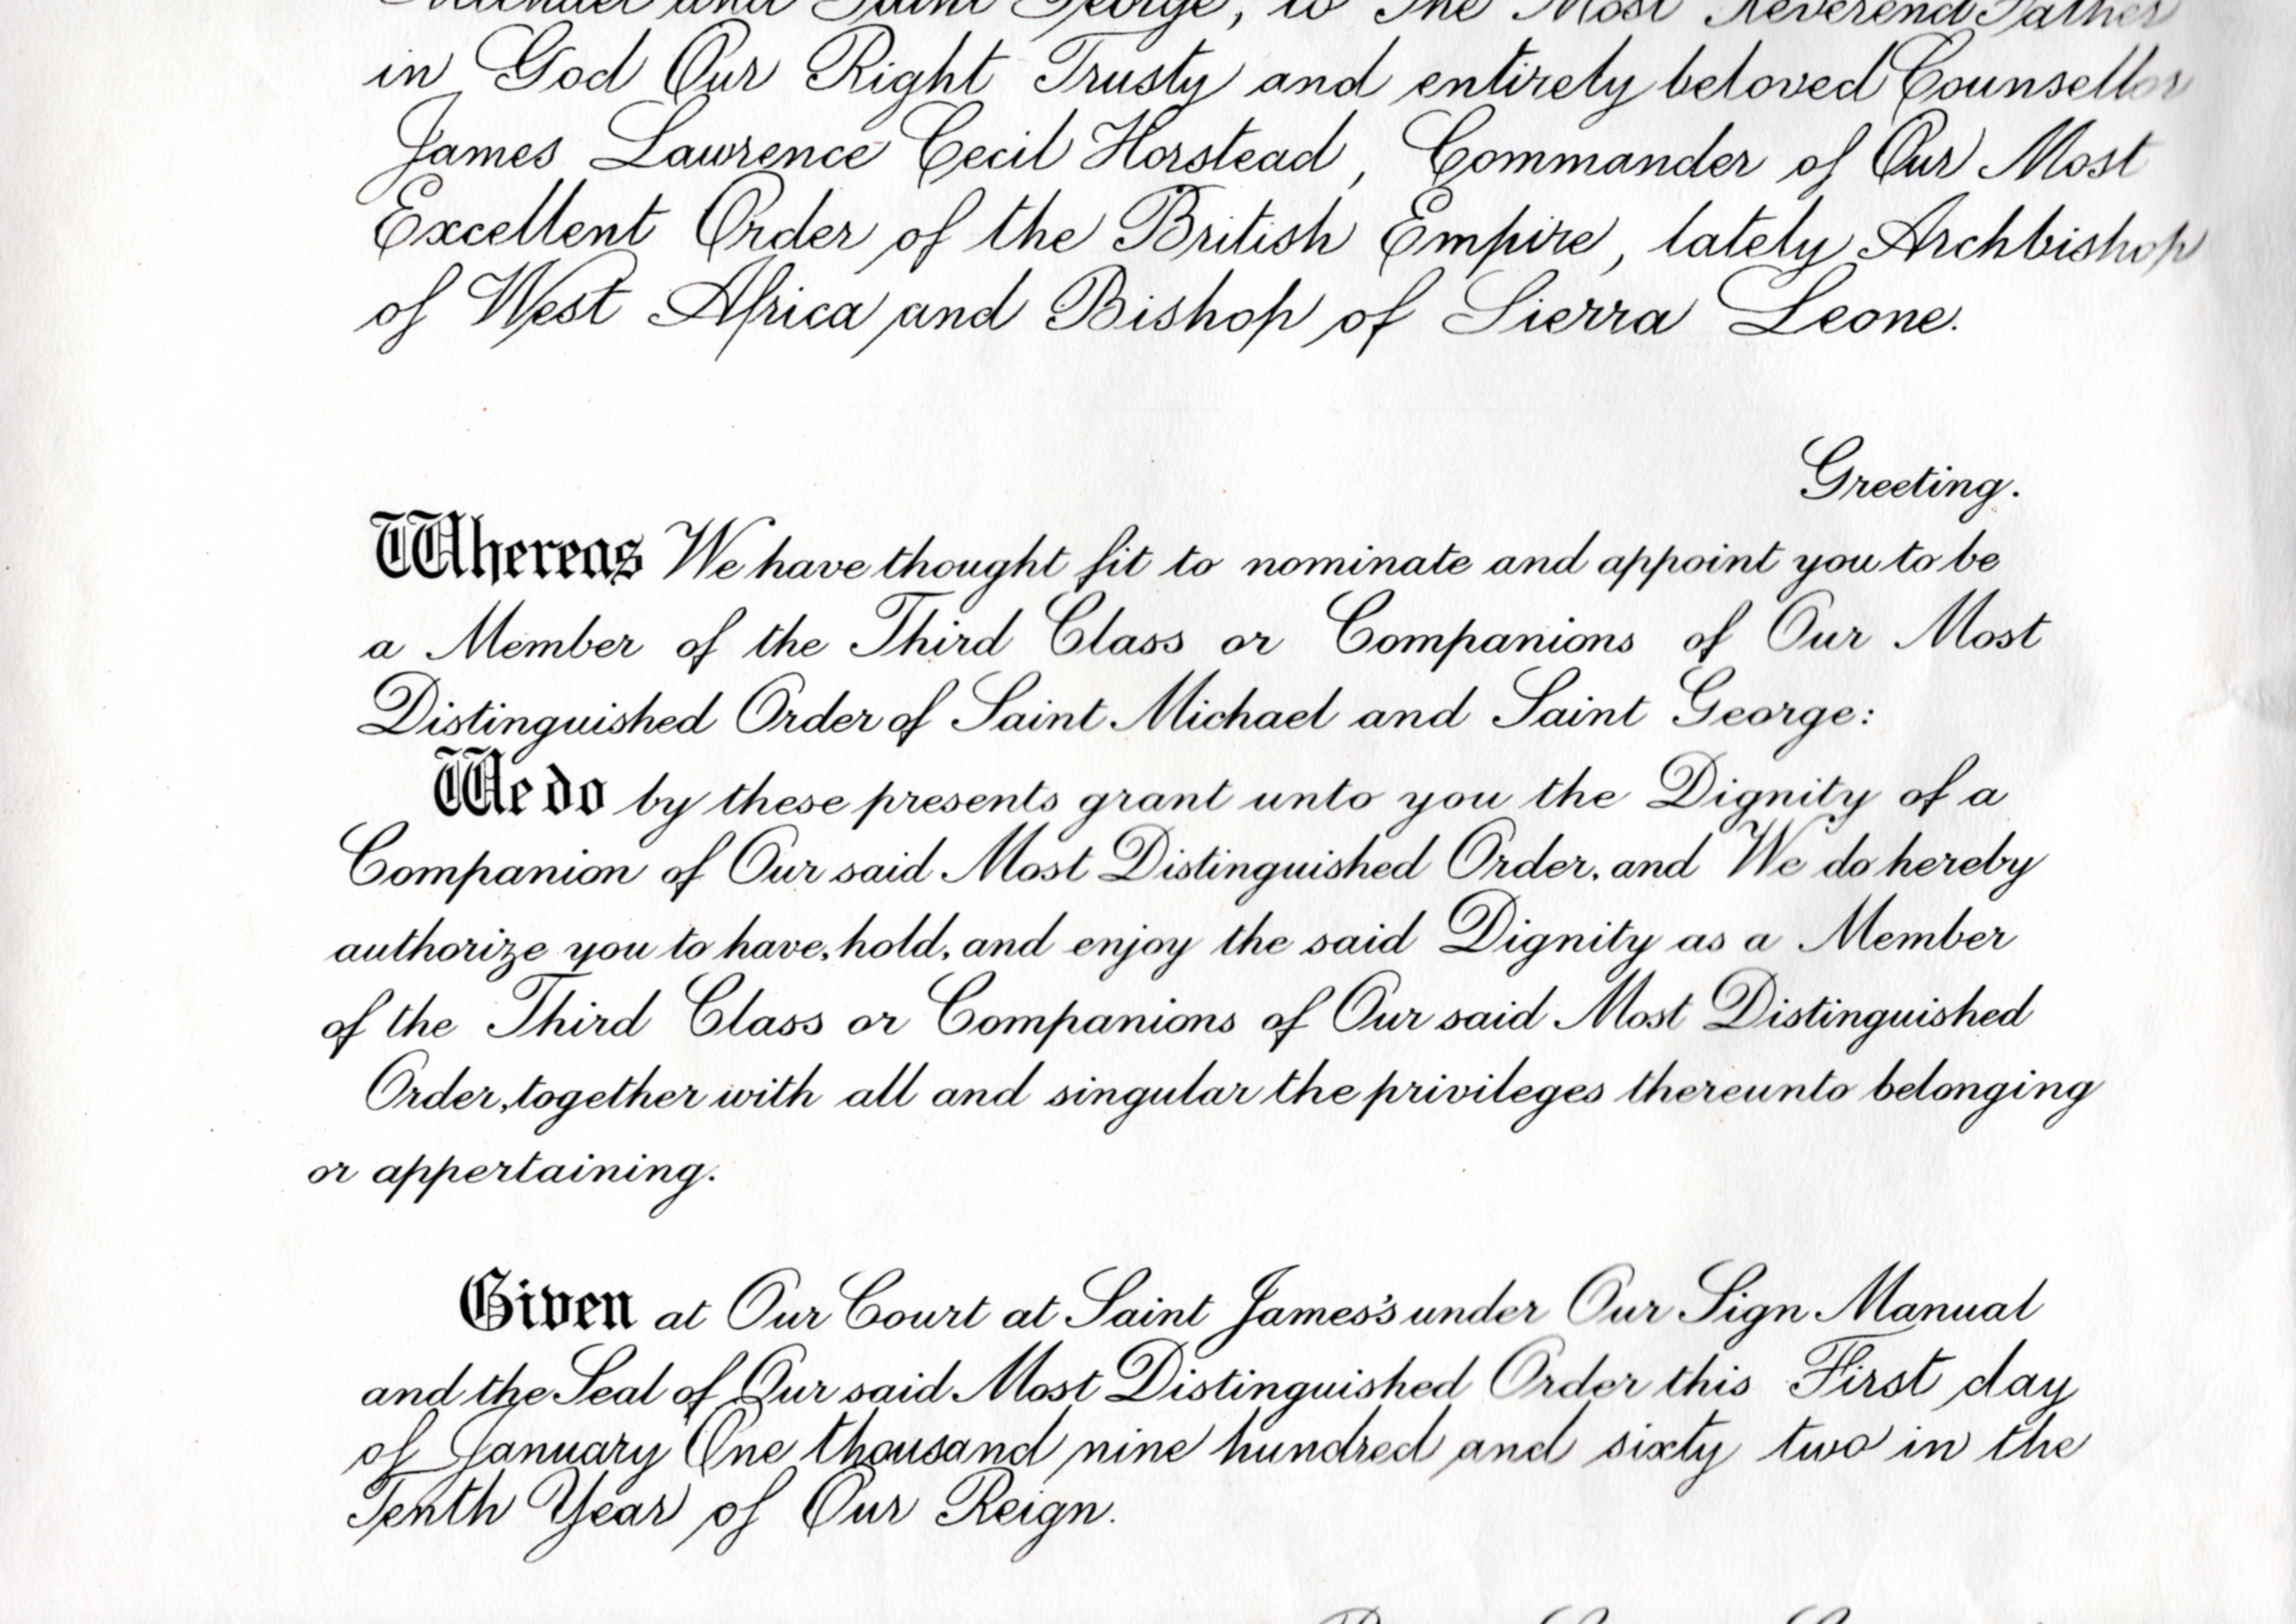 Michael and Saint George, to The Most Reverend Father
in God Our Right Trusty and entirely beloved Counsellor
James Lawrence Cecil Horstead, Commander of Our Most
Excellent Order of the British Empire, lately Archbishop
of West Africa and Bishop of Sierra Leone.
Greeting.
Whereas We have thought fit to nominate and appoint you to be
a Member of the Third Class or Companions of Our Most
Distinguished Order of Saint Michael and Saint George:
We do by these presents grant unto you the Dignity of a
Companion of Our said Most Distinguished Order, and We do hereby
authorize you to have, hold, and enjoy the said Dignity as a Member
of the Third Class or Companions of Our said Most Distinguished
Order, together with all and singular the privileges thereunto belonging
or appertaining.
Given at Our Court at Saint James's under Our Sign Manual
and the Seal of Our said Most Distinguished Order this First day
of January One thousand nine hundred and sixty two in the
Tenth Year of Our Reign.